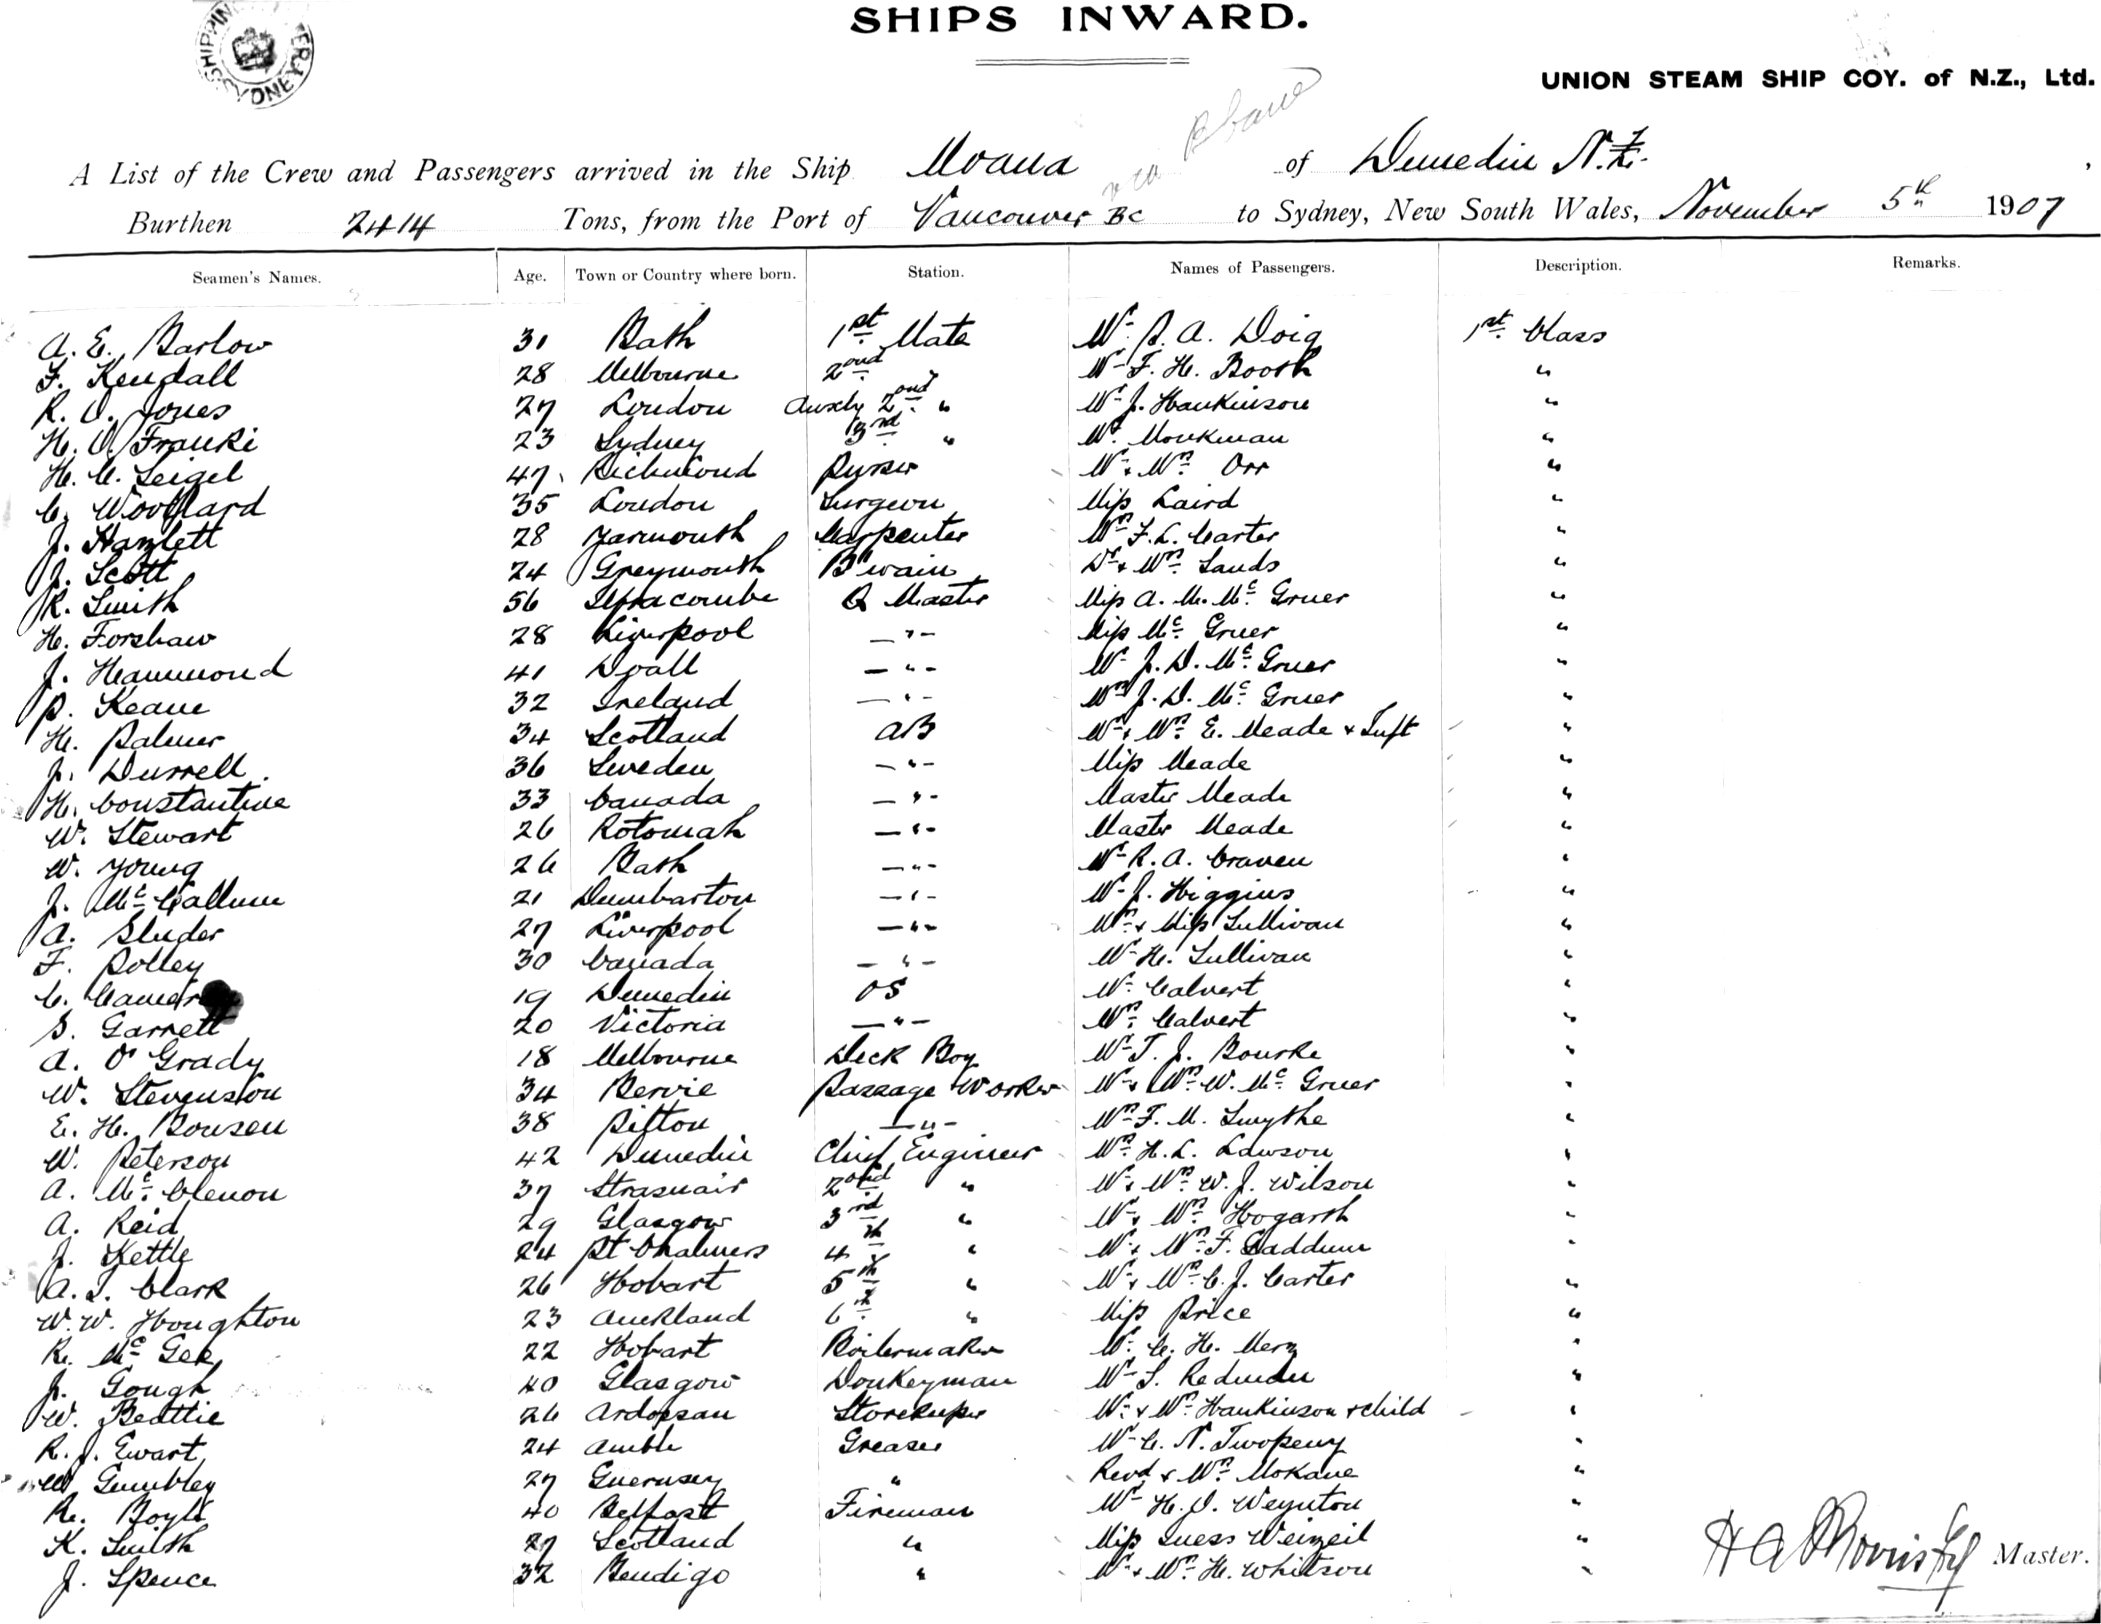 SHIPS INWARD.
UNION STEAM SHIP COY. of N.Z., Ltd.
via Bbane
A List of the Crew and Passengers arrived in the Ship Moana of Dunedin N.Z.
Burthen 2414 Tons, from the Port of Vancouver BC to Sydney, New South Wales, November 5th 1907
Seamen's Names. Age. Town or Country where born. Station. Names of Passengers. Description. Remarks.
A. E. Barlow 31 Bath 1st Mate Mr P. A. Doig 1st Class
F. Kendall 28 Melbourne 2ond " Mr F. H. Booth "
R. O. Jones 27 London Auxly 2ond " Mr J. Hankinson "
H. O. Franki 23 Sydney 3rd " Mr Monkman "
H. C. Seigel 47 Richmond Purser Mr & Mrs Orr "
C. Woollard 35 London Surgeon Miss Laird "
J. Hamlett 28 Yarmouth Carpenter Mrs F. L. Carter "
J. Scott 24 Greymouth B'swain Dr & Mrs Sands "
R. Smith 56 Ilfracombe Q Master Miss A. M. Mc Gruer "
H. Forshaw 28 Liverpool " Miss Mc Gruer "
J. Hammond 41 " Mr J. D. Mc Gruer "
P. Keane 32 Ireland " Mrs J. D. Mc Gruer "
H. Palmer 34 Scotland AB Mr & Mrs E. Meade & Inft "
J. Durrell 36 Sweden " Miss Meade "
H. Constantine 33 Canada " Master Meade "
W. Stewart 26 Rotomah " Master Meade "
W. Young 26 Bath " Mr R. A. Craven "
J. Mc Callum 21 Dumbarton " Mr J. Higgins "
A. Sluder 27 Liverpool " Mrs & Miss Sullivan "
F. Polley 30 Canada " Mr H. Sullivan "
C. 19 Dunedin OS Mr Calvert "
S. Garrett 20 Victoria " Mrs Calvert "
A. O'Grady 18 Melbourne Deck Boy Mr T. J. Bourke "
W. Stevenson 34 Bervie Passage Worker Mr & Mrs W. Mc Gruer "
E. H. Bousen 38 Pitton " Mrs F. M. Smythe "
W. Peterson 42 Dunedin Chief Engineer Mrs H. L. Lawson "
A. Mc Clenon 37 Strasnair 2ond " Mr & Mrs W. J. Wilson "
A. Reid 29 Glasgow 3rd " Mr & Mrs Hogarth "
J. Kettle 24 Pt Chalmers 4th " Mr & Mrs F. Gaddum "
A. I. Clark 26 Hobart 5th " Mr & Mrs C. J. Carter "
W. W. Houghton 23 Auckland 6th " Miss Price "
R. Mc Gee 22 Hobart Boilermaker Mr C. H. Merz "
J. Gough 40 Glasgow Donkeyman Mr S. Redmder "
W. Beattie 26 Ardossan Storekeeper Mr & Mrs Hankinson & child "
R. J. Ewart 24 Amble Greaser Mr C. N. Twopeny "
Gumbley 27 Guernsey " Revd & Mrs McKane "
R. Boyle 40 Belfast Fireman Mr H. J. Weynton "
K. Smith 27 Scotland " Miss Suess Weizeil "
J. Spence 32 Bendigo " Mr & Mrs H. Whitson "
Master.